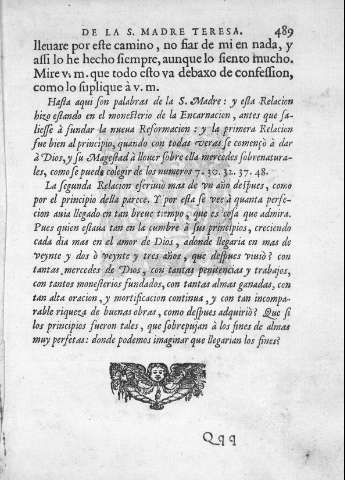 DE LA S. MADRE TERESA. 489
lleuare por este camino, no fiar de mi en nada, y
assi lo he hecho siempre, aunque lo siento mucho.
Mire v. m. que todo esto va debaxo de confession,
como lo suplique à v. m.
Hasta aqui son palabras de la S. Madre: y esta Relacion
hizo estando en el monesterio de la Encarnacion, antes que sa-
liesse à fundar la nueua Reformacion: y la primera Relacion
fue bien al principio, quando con todas veras se començò à dar
à Dios, y su Magestad à llouer sobre ella mercedes sobrenatura-
les, como se puede colegir de los numeros 7. 30. 32. 37. 48.
La segunda Relacion escriuiò mas de vn año despues, como
por el principio della parece. Y por esta se vee à quanta perfe-
cion auia llegado en tan breue tiempo, que es cosa que admira.
Pues quien estaua tan en la cumbre à sus principios, creciendo
cada dia mas en el amor de Dios, adonde llegaria en mas de
veynte y dos ò veynte y tres años, que despues viuiò? con
tantas mercedes de Dios, con tantas penitencias y trabajos,
con tantos monesterios fundados, con tantas almas ganadas, con
tan alta oracion, y mortificacion continua, y con tan incompa-
rable riqueza de buenas obras, como despues adquiriò? Que si
los principios fueron tales, que sobrepujan à los fines de almas
muy perfetas: donde podemos imaginar que llegarian los fines?
Qqq